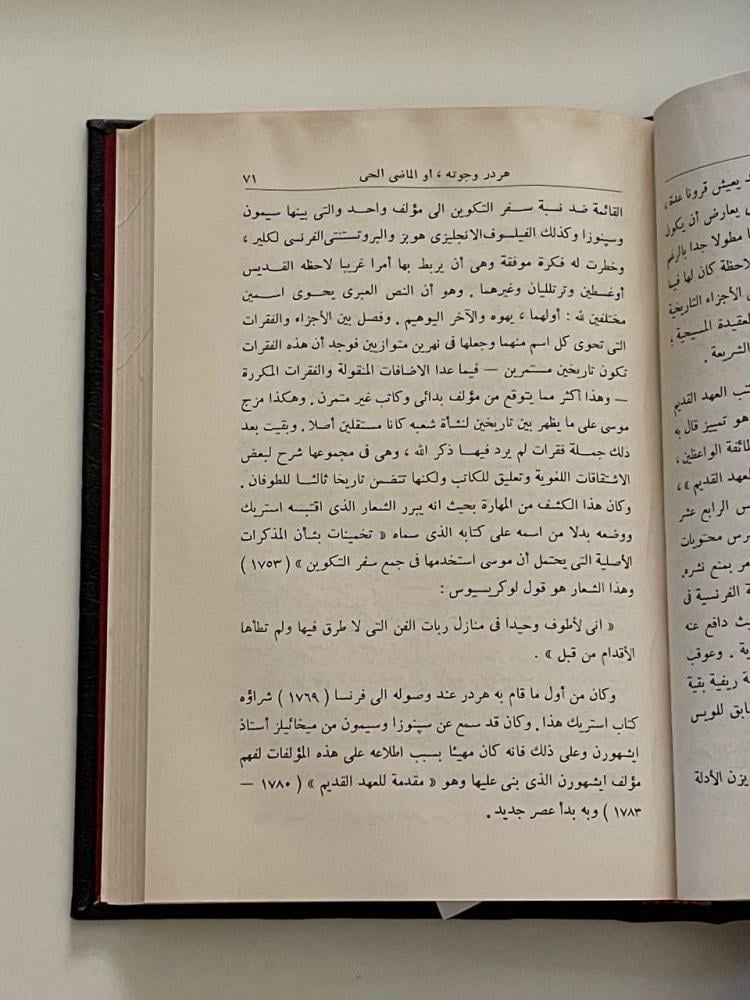 د يعيش قرونا عدة ،
يعارض أن يكون
مطولا جدا بالرغم
لاحظة كان لها فيما
الأجزاء التاريخية
لعقيدة المسيحية ؛
الشريعة .
تب العهد القديم
هو تمييز قال به
طائفة الواعظين ،
العهد القديم » ،
س الرابع عشر
رس محتويات
مر بمنع نشره .
ة الفرنسية فى
يث دافع عنه
ية . وعوقب
ة ريفية بقية
ابق للويس
يزن الأدلة
هردر وجوته ، أو الماضى الحى ٧١
القائمة ضد نسبة سفر التكوين الى مؤلف واحد والتى بينها سيمون
وسپنوزا وكذلك الفيلسوف الانجليزى هوبز والبروتستنتى الفرنسى لكلير ،
وخطرت له فكرة موفقة وهى أن يربط بها أمرا غريبا لاحظه القديس
أوغسطين وترتلليان وغيرهما . وهو أن النص العبرى يحوى اسمين
مختلفين لله : أولهما ، يهوه والآخر اليوهيم . وفصل بين الأجزاء والفقرات
التى تحوى كل اسم منهما وجعلها فى نهرين متوازيين فوجد أن هذه الفقرات
تكون تاريخين مستمرين — فيما عدا الاضافات المنقولة والفقرات المكررة
— وهذا أكثر مما يتوقع من مؤلف بدائى وكاتب غير متمرن . وهكذا مزج
موسى على ما يظهر بين تاريخين لنشأة شعبه كانا مستقلين أصلا . وبقيت بعد
ذلك جملة فقرات لم يرد فيها ذكر الله ، وهى فى مجموعها شرح لبعض
الاشتقاقات اللغوية وتعليق للكاتب ولكنها تتضمن تاريخا ثالثا للطوفان .
وكان هذا الكشف من المهارة بحيث انه يبرر الشعار الذى اقتبسه استريك
ووضعه بدلا من اسمه على كتابه الذى سماه « تخمينات بشأن المذكرات
الأصلية التى يحتمل أن موسى استخدمها فى جمع سفر التكوين » ( ١٧٥٣ )
وهذا الشعار هو قول لوكريسيوس :
« انى لأطوف وحيدا فى منازل ربات الفن التى لا طرق فيها ولم تطأها
الأقدام من قبل » .
وكان من أول ما قام به هردر عند وصوله الى فرنسا ( ١٧٦٩ ) شراؤه
كتاب استريك هذا . وكان قد سمع عن سپنوزا وسيمون من ميخائيلز أستاذ
ايشهورن وعلى ذلك فانه كان مهيئا بسبب اطلاعه على هذه المؤلفات لفهم
مؤلف ايشهورن الذى بنى عليها وهو « مقدمة للعهد القديم » ( ١٧٨٠ —
١٧٨٣ ) وبه بدأ عصر جديد .